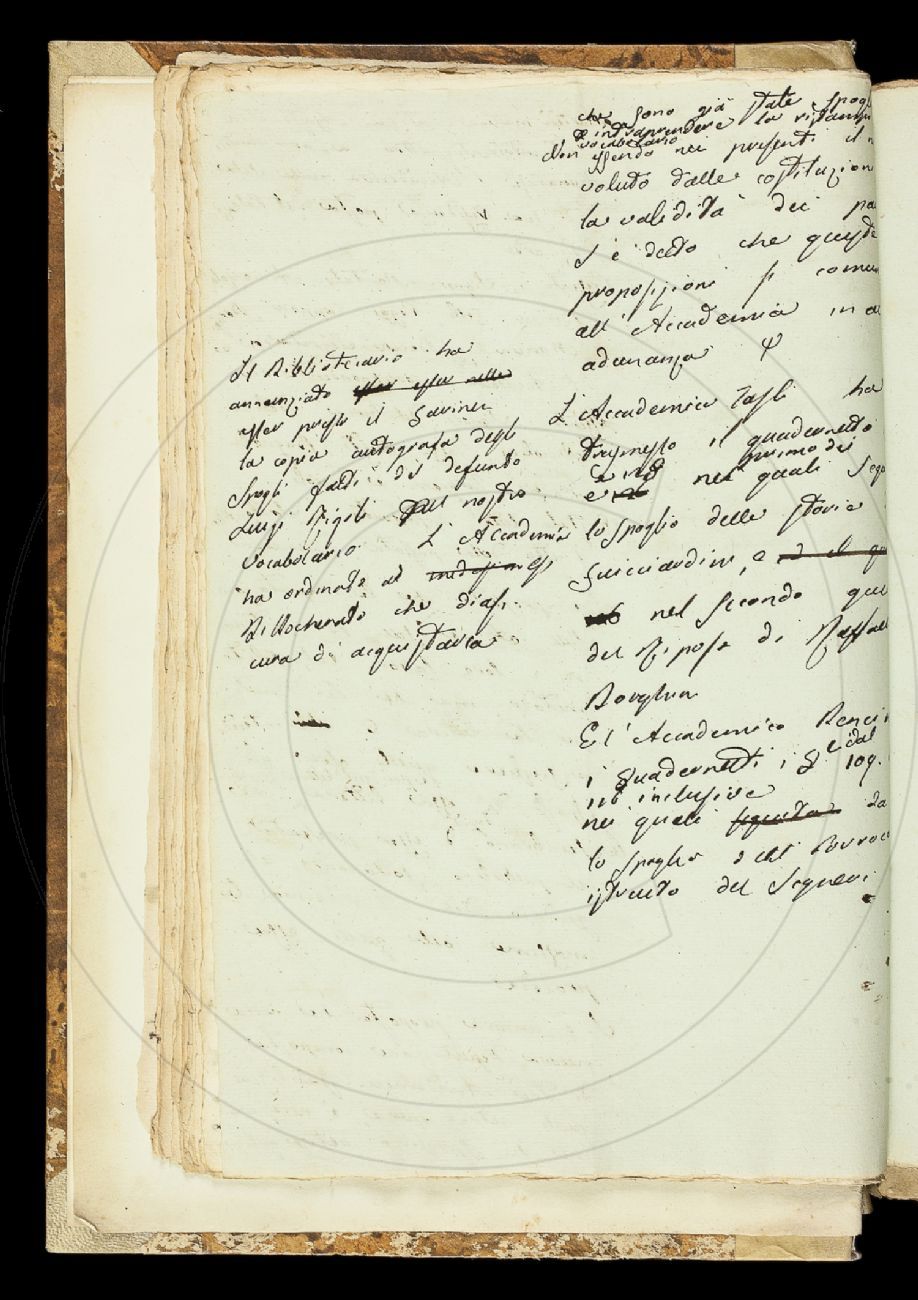 che sono già state spogl
e intraprendere la ristamp
vocabolario
Non essendo nei presenti il n
voluto dalle costituzion
la validità dei pa
s'è detto che queste
proposizioni si comun
all'Accademia in a
adunanza
L'Accademico Tassi ha
trasmesso il quadernetto
e nei quali primo dei
lo spoglio delle storie
Guicciardini, e
nel secondo qu
del Riposo di Raffael
Borghini
E l'Accademico Renci
i Quadernetti di dal 109.
116 inclusive
nei quali seguita da
lo spoglio dell'
istruito del Segneri
Il Bibliotecario ha
annunziato esser esser nelle
esser presso il
la copia autografa degli
Spogli fatti dal defunto
Luigi Rigoli del nostro
Vocabolario. L'Accademia
ha ordinato al
Bibliotecario che diasi
cura di acquistarla